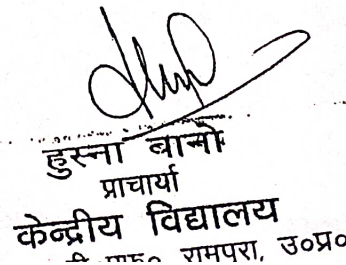 हुस्ना बानो
प्राचार्या
केन्द्रीय विद्यालय
रामपुरा, उ०प्र०